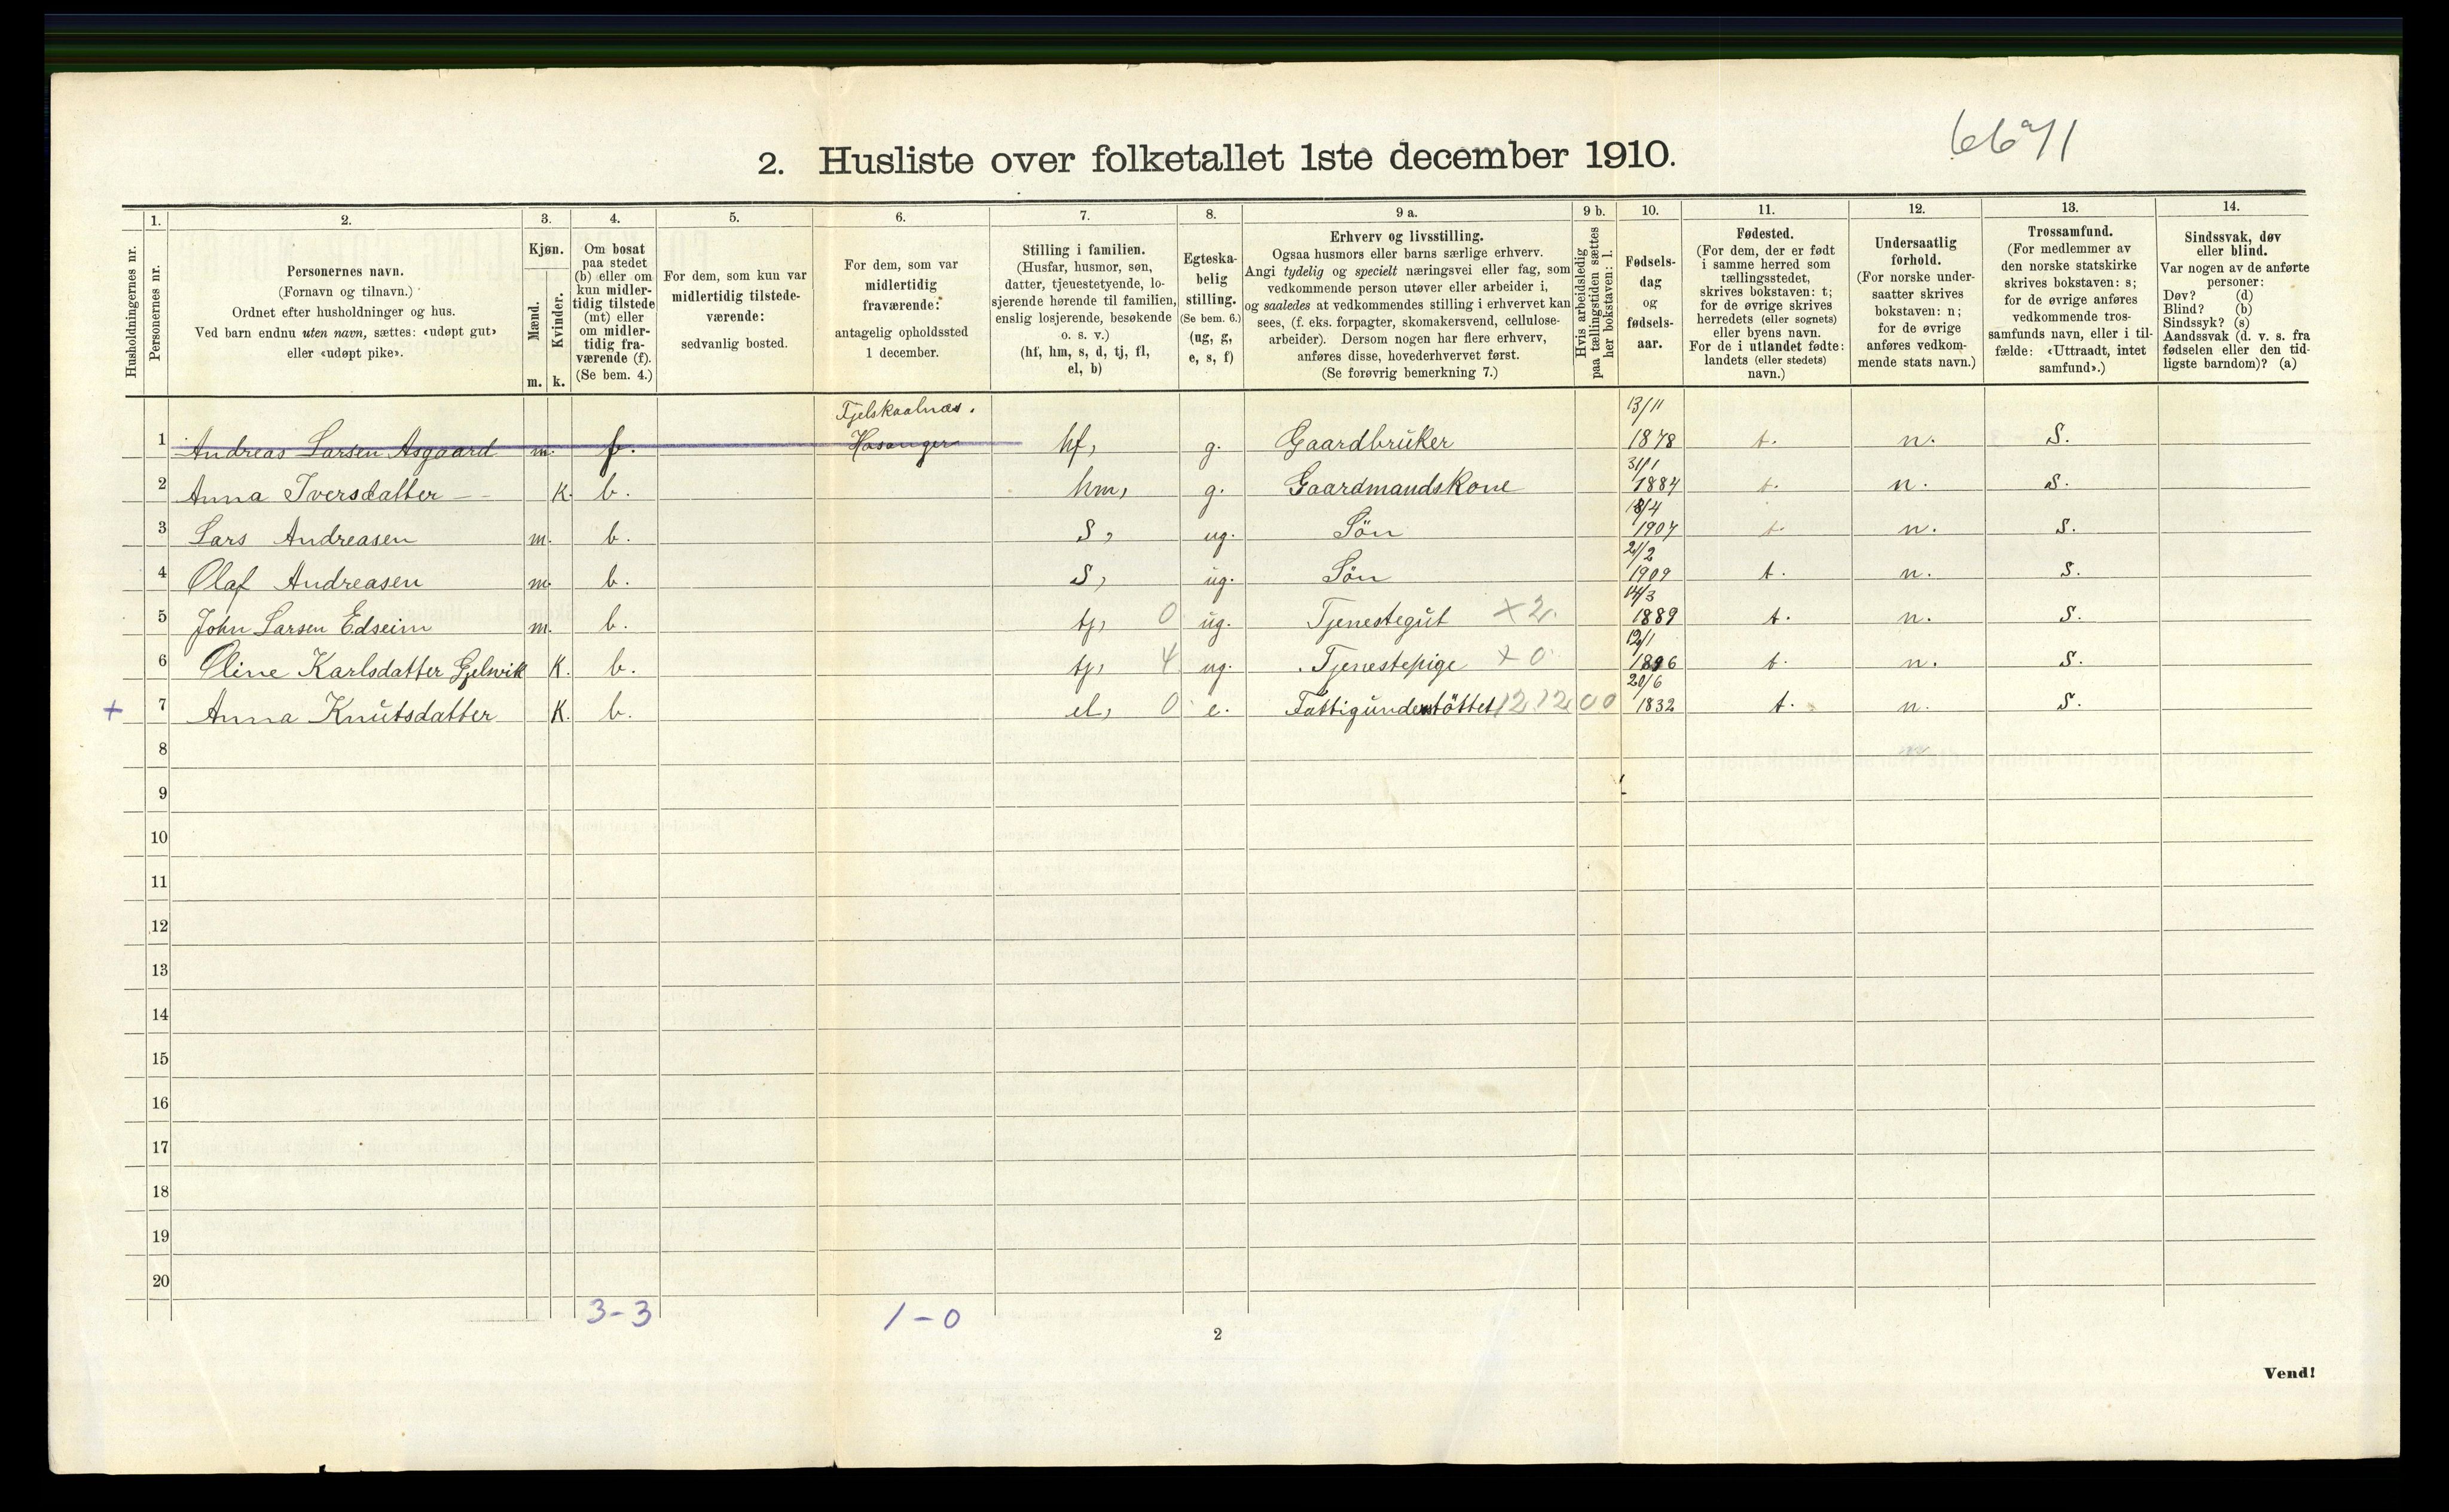 2. Husliste over folketallet 1ste december 1910.
Husholdningernes nr.
1.
Personernes nr.
2.
Personernes navn.
(Fornavn og tilnavn.)
Ordnet efter husholdninger og hus.
Ved barn endnu uten navn, sættes: «udøpt gut»
eller «udøpt pike».
3.
Kjøn.
Mænd.
Kvinder.
m. k.
4.
Om bosat
paa stedet
(b) eller om
kun midler-
tidig tilstede
(mt) eller
om midler-
tidig fra-
værende (f).
(Se bem. 4.)
5.
For dem, som kun var
midlertidig tilstede-
værende:
sedvanlig bosted.
6.
For dem, som var
midlertidig
fraværende:
antagelig opholdssted
1 december.
7.
Stilling i familien.
(Husfar, husmor, søn,
datter, tjenestetyende, lo-
sjerende hørende til familien,
enslig losjerende, besøkende
o. s. v.)
(hf, hm, s, d, tj, fl,
el, b)
8.
Egteska-
belig
stilling.
(Se bem. 6.)
(ug, g,
e, s, f)
9 a.
Erhverv og livsstilling.
Ogsaa husmors eller barns særlige erhverv.
Angi tydelig og specielt næringsvei eller fag, som
vedkommende person utøver eller arbeider i,
og saaledes at vedkommendes stilling i erhvervet kan
sees, (f. eks. forpagter, skomakersvend, cellulose-
arbeider). Dersom nogen har flere erhverv,
anføres disse, hovederhvervet først.
(Se forøvrig bemerkning 7.)
9 b.
Hvis arbeidsledig
paa tællingstiden sættes
her bokstaven: l.
10.
Fødsels-
dag
og
fødsels-
aar.
11.
Fødested.
(For dem, der er født
i samme herred som
tællingsstedet,
skrives bokstaven: t;
for de øvrige skrives
herredets (eller sognets)
eller byens navn.
For de i utlandet fødte:
landets (eller stedets)
navn.)
12.
Undersaatlig
forhold.
(For norske under-
saatter skrives
bokstaven: n;
for de øvrige
anføres vedkom-
mende stats navn.)
13.
Trossamfund.
(For medlemmer av
den norske statskirke
skrives bokstaven: s;
for de øvrige anføres
vedkommende tros-
samfunds navn, eller i til-
fælde: «Uttraadt, intet
samfund».)
14.
Sindssvak, døv
eller blind.
Var nogen av de anførte
personer:
Døv? (d)
Blind? (b)
Sindssyk? (s)
Aandssvak (d. v. s. fra
fødselen eller den tid-
ligste barndom)? (a)
Fjelskaalnæs. 13/11
1 Andreas Larsen Asgaard m. f. Hosanger hf, g. Gaardbruker 1878 t. n. S.
31/1
2 Anna Iversdatter – – K. b. hm, g. Gaardmandskone 1884 t. n. S.
18/4
3 Lars Andreasen m. b. S, ug. Søn 1907 t. n. S.
21/2
4 Olaf Andreasen m. b. S, ug. Søn 1909 t. n. S.
14/3
5 John Larsen Edseim m. b. tj, 0 ug. Tjenestegut × 2. 1889 t. n. S.
12/1
6 Oline Karlsdatter Gjelsvik K. b. tj, 4 ug. Tjenestepige × 0 1896 t. n. S.
20/6
+ 7 Anna Knutsdatter K. b. el, 0 e. Fattigunderstöttet 12.12 00 1832 t. n. S.
8
9
10
11
12
13
14
15
16
17
18
19
20
3-3 1-0
2
Vend!